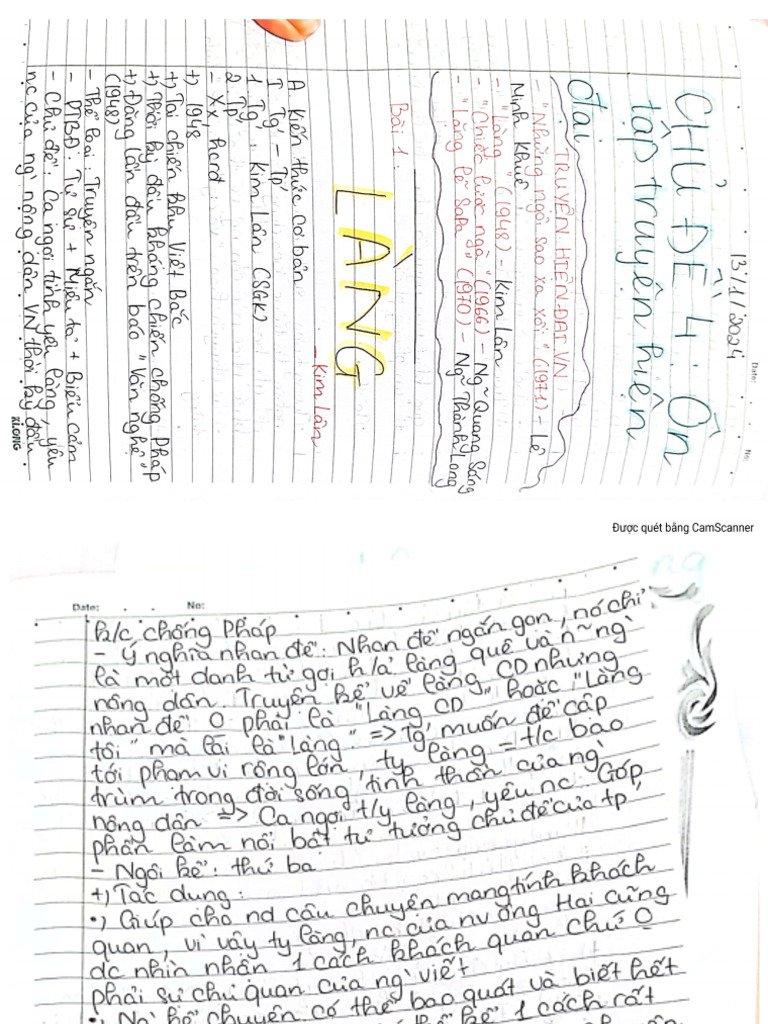 Date:
No:
13/1/2024
CHỦ ĐỀ 4: Ôn
tập truyện hiện
đại
TRUYỆN HIỆN ĐẠI VN
- "Những ngôi sao xa xôi" (1971) - Lê
Minh Khuê
- "Làng" (1948) - Kim Lân
- "Chiếc lược ngà" (1966) - Ng~ Quang Sáng
- "Lặng lẽ SaPa" (1970) - Ng~ Thành Long
Bài 1.
LÀNG
- Kim Lân
A kiến thức cơ bản
I Tg - Tp'
1 Tg': Kim Lân (SGK)
2. Tp'
- xx hcđ
+) 1948
+) Tại chiến khu Việt Bắc
+) Thời kỳ đầu kháng chiến chống Pháp
+) Đăng lần đầu trên báo "Văn nghệ"
(1948)
- Thể loại: Truyện ngắn
- PTBĐ: Tự sự + Miêu tả + Biểu cảm
- Chủ đề: Ca ngợi tình yêu làng, yêu
nc của ng' nông dân VN thời kỳ đầu
KLONG
Được quét bằng CamScanner
ng
Date:
No:
k/c chống Pháp
- Ý nghĩa nhan đề: Nhan đề ngắn gọn, nó chỉ
là một danh từ gợi h/ả làng quê và n~ ng'
nông dân. Truyện kể về làng CD nhưng
nhan đề O phải là "Làng CD" hoặc "Làng
tôi" mà lại là "làng." => Tg' muốn đề cập
tới phạm vi rộng lớn, ty làng = t/c bao
trùm trong đời sống tinh thần của ng'
nông dân => Ca ngợi t/y làng, yêu nc. Góp
phần làm nổi bật tư tưởng chủ đề của tp'
- Ngôi kể: thứ ba
+) Tác dụng:
•) Giúp cho nd câu chuyện mang tính khách
quan, vì vậy ty làng, nc của nv ông Hai cũng
dc nhìn nhận 1 cách khách quan chứ O
phải sự chủ quan của ng' viết
•) Ng' kể chuyện có thể bao quát và biết hết
kể 1 cách rất